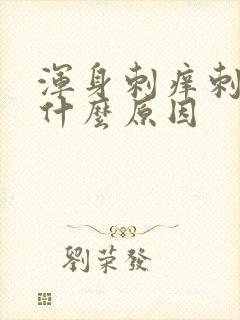 渾身刺痒刺
什麼原因
劉荣發